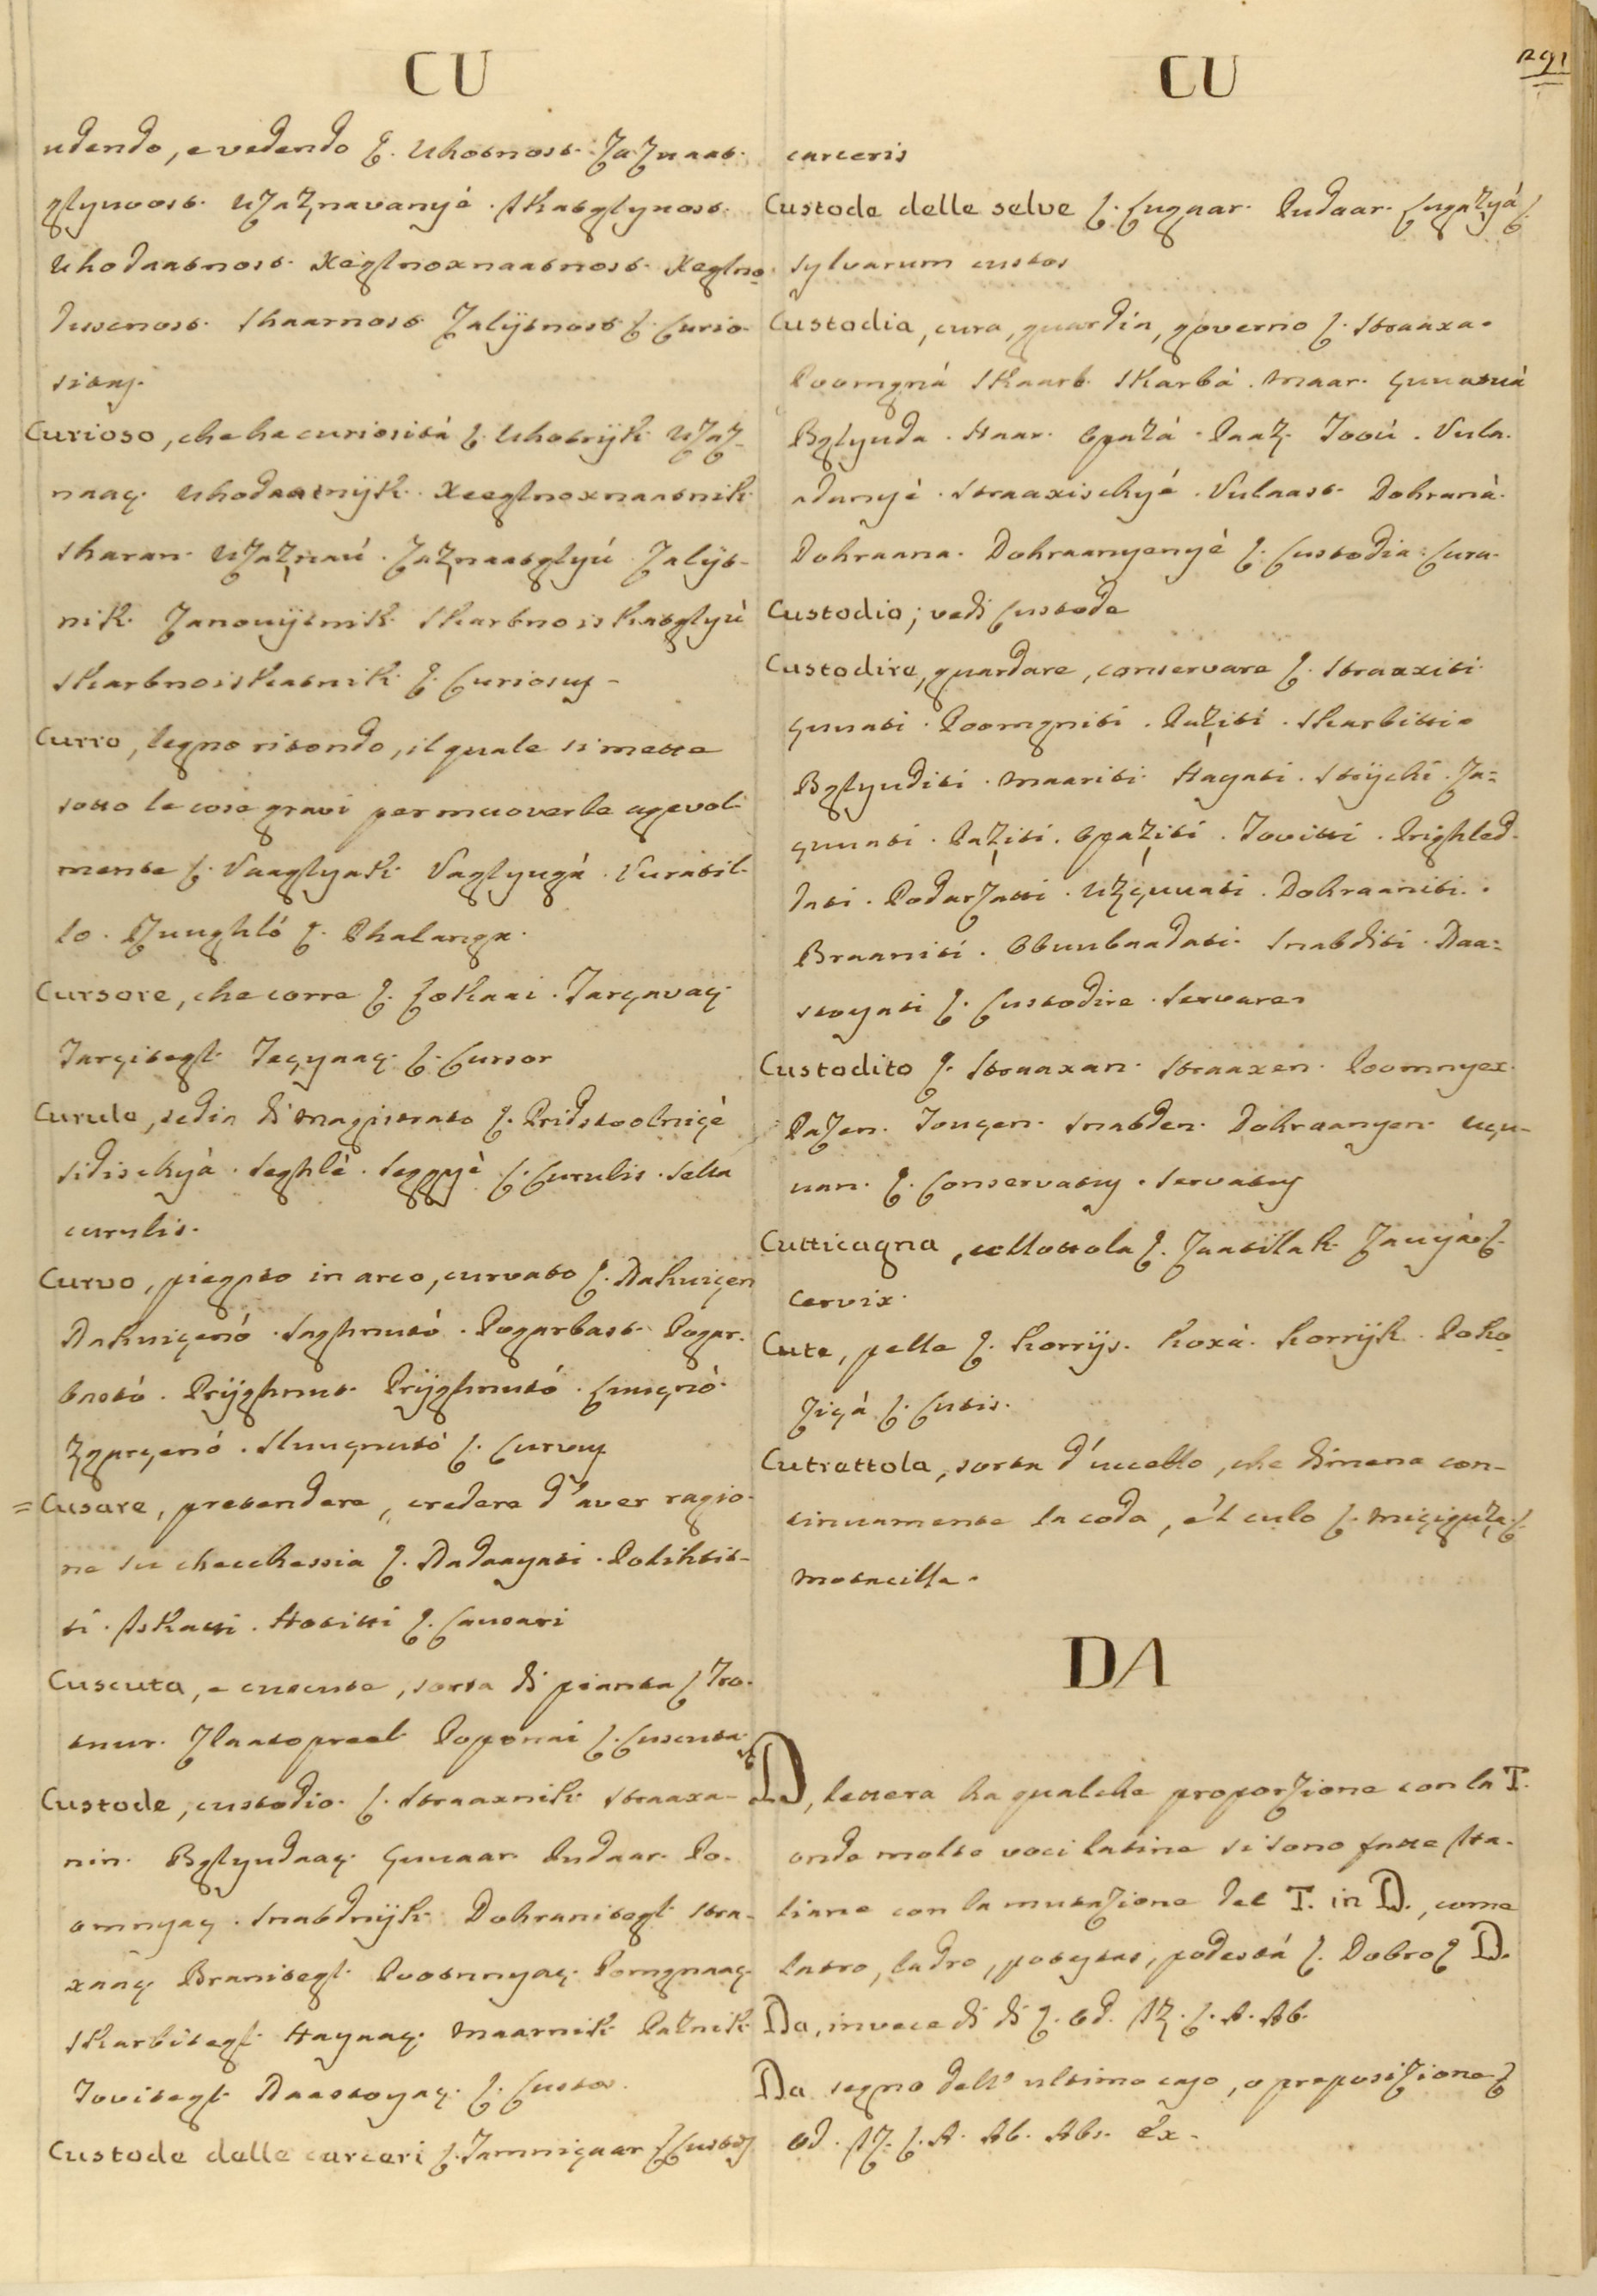 CU
udendo, e vedendo ζ. Uhotnost. ZaZnaat-
glyuvost. UZaZnavanyé. Iskatglynost.
Uhodaatnost. Xéglnoxnaatnost. Xeglno-
dusenost. Skaarnost. Zalijtnost ζ. Curio-
sitas.
Curioso, che ha curiosità ζ. Uhotrijk. UZaZ-
naaç. Uhodaatnijk. Xeeglnoxnaatnik
Skaran. UZaZnaú. ZaZnaatglyú. Zalijt-
nik. Zanovijtnik. Skarbnoiskatglyú
Skarbnoiskatnik ζ. Curiosus-
Curro, legno ritondo, il quale si mette
sotto le cose gravi per muoverle agevol-
mente ζ. Vaaglyak. Vaglyugá. Vuratil-
lo. Zuughló ζ. Phalanga.
Cursore, che corre ζ. Sokaai. Tarçavaç.
Tarçitegl. Teçyaaç. ζ. Cursor
Curule, sedia di magistrato ζ. Pridstoolniçé
Sidischyá. Seghlé. Seggyé ζ. Curulis. Sella
curulis.
Curvo, piegato in arco, curvato ζ. Nakuiçen
Nakuiçenó. Saghnutó. Pogarbast. Pogar-
bastó. Prijghnut. Prijghnutó. Çuuçnó.
Zgurçenó. Sluuçnutó ζ. Curvus
= Cusare, pretendere, credere d'aver ragio-
ne su checchessia ζ. Nadaayati. Polihtit-
ti. Iskatti. Hotitti ζ. Causari
Cuscuta, e cuscute, sorta di pianta ζ Tro-
snur. Zlaatopreel. Poponai ζ. Cuscuta.
Custode, custodio. ζ. Straaxnik. Straaxa-
nin. Bglyudaaç. Çuuaar. Pudaar. Po-
omnyaç. Snabdnijk. Dohranitegl. Stra-
xaaç Branitegl. Pootnnyaç. Pomgnaaç.
Skarbitegl. Hayaaç. Maarnik. Paznik.
Tovitegl. Naastoyaç. ζ. Custos.
Custode delle carceri ζ. Tamniçaar ζ Custos
CU
291
carceris
Custode delle selve ζ. Lugaar. Pudaar. Lugazyá ζ.
sylvarum custos
Custodia, cura, guardia, governo ζ. Straaxa.
Poomgná Skaarb. Skarbá. Maar. Çuuatuá
Bglyuda. Haar. Opazá. Paaz. Tooú. Vula-
adanyé. Straaxischyé. Vulaast. Dohraná.
Dohraana. Dohraanyenyé ζ. Custodia. Cura.
Custodio; vedi Custode
Custodire, guardare, conservare ζ. Straaxiti
Çuuati. Poomgniti. Paziti. Skarbitti.
Bglyuditi. Maariti. Hayati. Strijchi. Za-
çuuati. Paziti. Opaziti. Tovitti. Prighled-
dati. PodarZatti. UZçuuati. Dohraaniti.
Braaniti. Obuubaadati. Snabditi. Naa-
stoyati ζ. Custodire. Servare.
Custodito ζ. Straaxan. Straaxen. Poomnyex.
Pazen. Touçen. Snabden. Dohraanyen. Uçu-
uan. ζ. Conservatus. Servatus
Cutticagna, collottola ζ. Zaatillak. Zauyá ζ.
Cervix.
Cute, pelle ζ. Korrijs. Koxá. Korrijk. Poko-
Ziçá ζ. Cutis.
Cutrattola, sorta d'uccello, che dimena con-
tinuamente la coda, e'l culo ζ. Miçiguza. ζ.
Motacilla.
DA
D, lettera ha qualche proporZione con la T.
onde molte voci latine si sono fatte Ita-
liane con la mutaZione del T. in D., come
latro, ladro, potestas, podestá ζ. Dobro ζ D.
Da, invece di di ζ. Od. IZ. ζ. A. Ab.
Da segno dell' ultimo caso, o preposiZione ζ
Od. IZ. ζ. A. Ab. Abs. Ex.